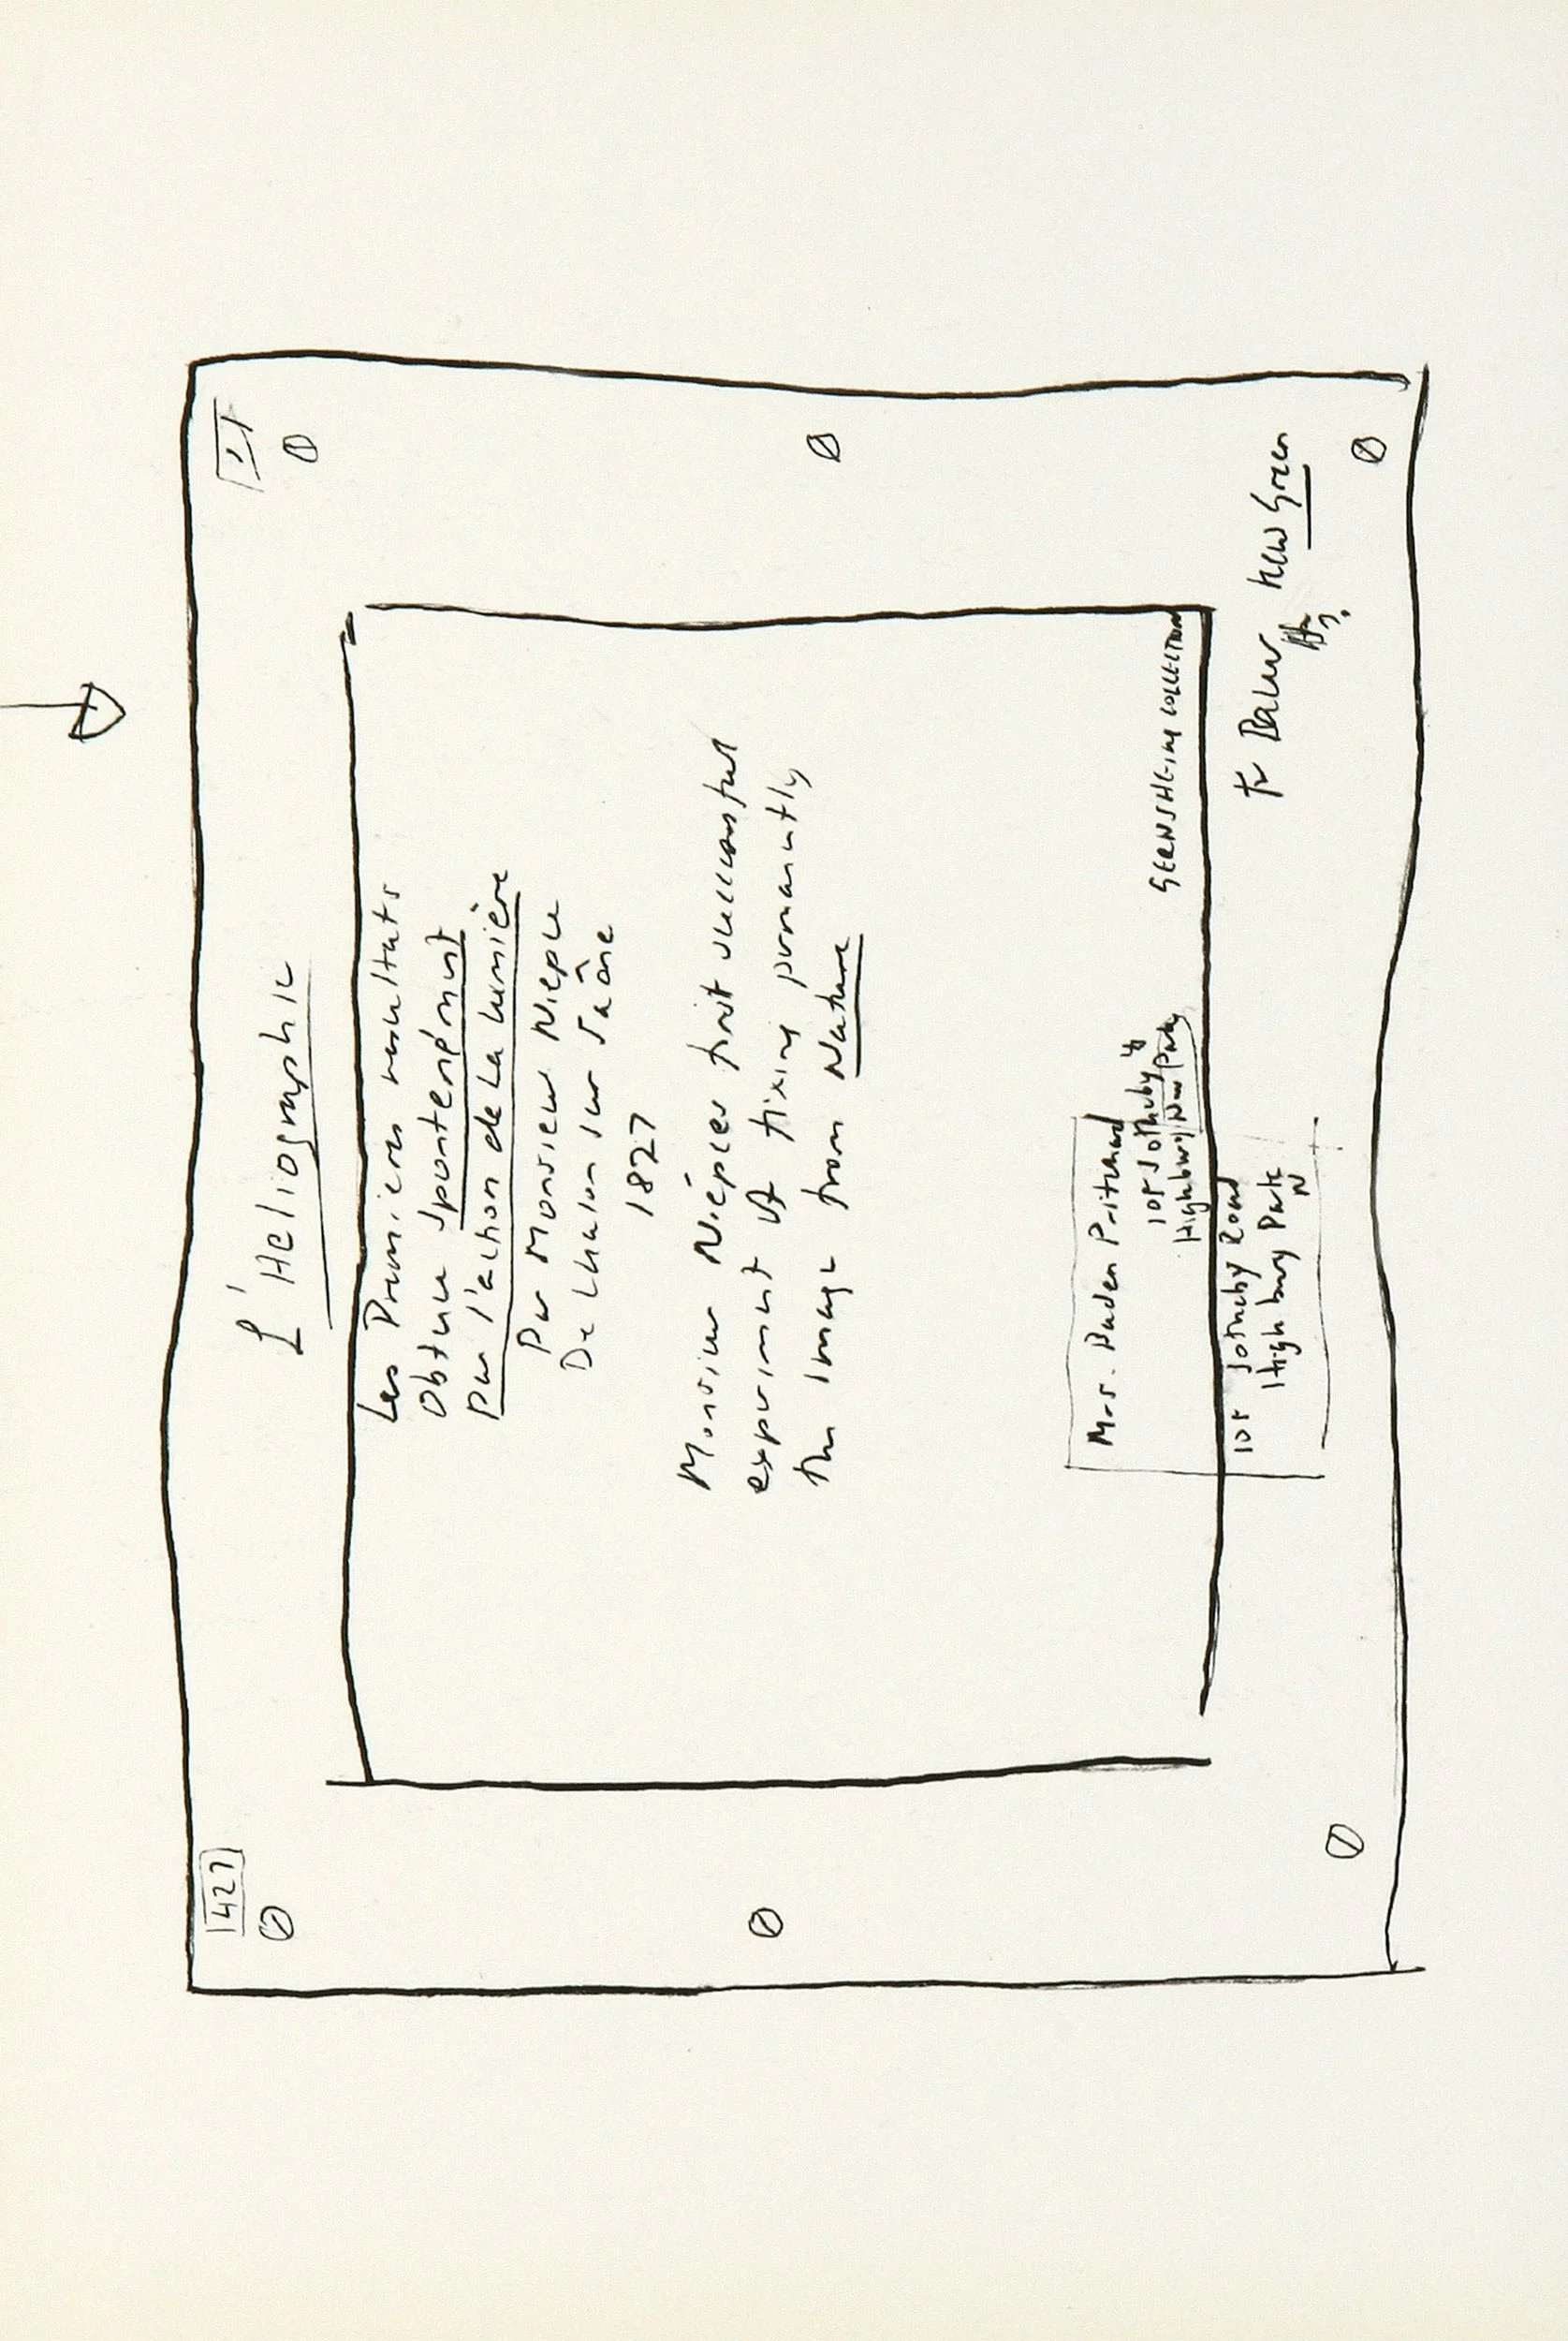 427
L'Heliographie
Les Premiers resultats
Obtenu Spontenement
Par l'action de La Lumière
Par Monsieur Niepce
De Chalon sur Saône
1827
Monsieur Niépces first successful
experiment of fixing permanently
the Image from Nature
Mrs. Baden Pritchard
105 Sotheby
Highbury New Park
GERNSHEIM COLLECTION
105 Sotheby Road
Highbury Park
N
Fr Baker Kew Green